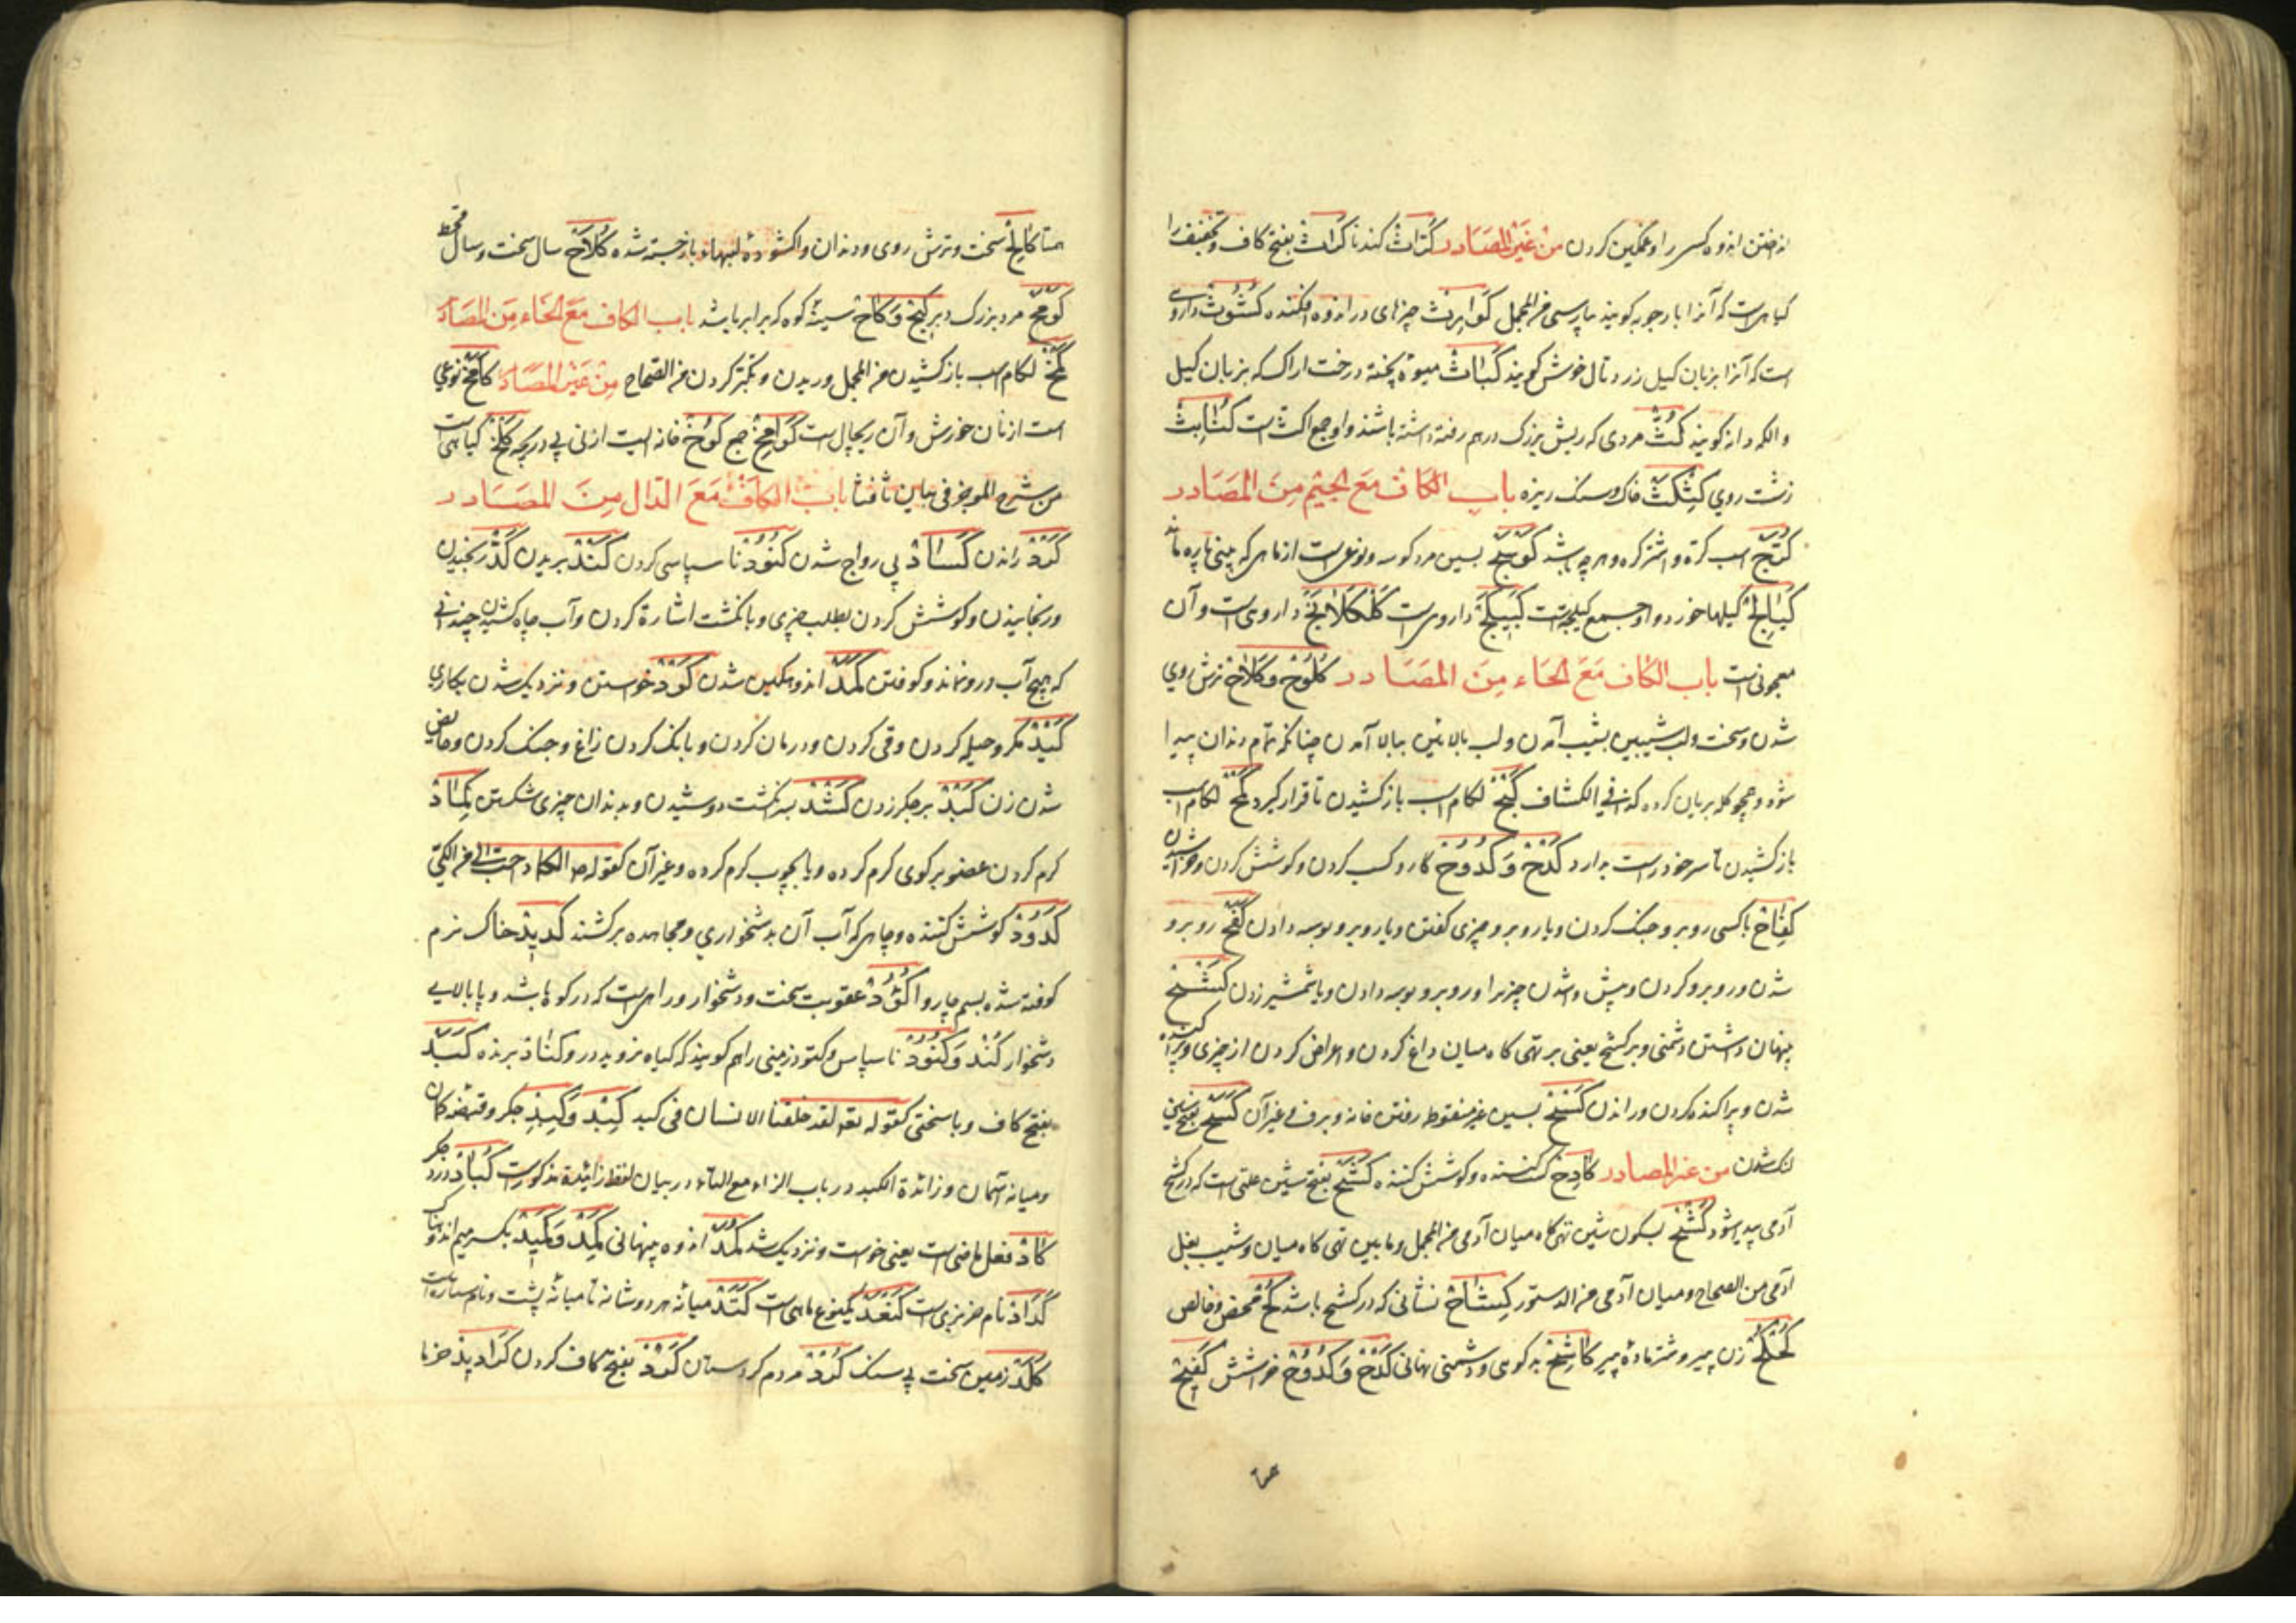 انداختن اندوه کسی را و غمگین کردن من غیر المصادر کُرّاث کندنا کَراث بفتح کاف و تخفیف را
گیاهیست که آنرا بارجوبه گویند بپارسی من المجمل کَوارِث چیزهای در اندوه افکننده کُشوث داروی
است که آنرا بزبان گیل زردتال خوش گویند کَباث میوهٔ پخته درخت اراک که بزبان گیل
گویند کثّ مردی که ریش بزرگ درهم رفته داشته باشد و او جمع اکث است
زشت روی کِثکِث خاک و سنگ ریزه باب الکاف مع الجیم من المصادر
اسب کره و اشتر کره و هرچه باشد کوسج بسین مرد کوسه و نوعی است از ماهی که بینی
کَیالِج کیلها خورد و او جمع کیلجه است داروی است کلکلانج داروی است و آن
معجونی است باب الکاف مع الحاء من المصادر کُلوح و کُلاح ترش روی
شدن و سخت و لب شیبین بشیب آمدن و لب بالائین ببالا آمدن چنانکه تمام دندان پیدا
شود و همچو کله بریان کرده کذا فی الکشاف کبح لکام اسب باز کشیدن تا قرار گیرد کمح لکام اسب
باز کشیدن تا سر خود راست بدارد کدح و کدوح کار و کسب کردن و کوشش کردن و خراشیدن
کِفاح با کسی روبرو جنگ کردن و با روبرو چیزی گفتن و با روبرو بوسه دادن کفح روبرو
شدن و روبرو کردن و پیش داشتن چیز را و روبرو بوسه دادن و با شمشیر زدن کشح
پنهان داشتن دشمنی و بر کشح یعنی بر تهی کاه میان داغ کردن و اعراض کردن از چیزی و
شدن و پراکنده کردن و راندن کسح بسین غیر منقوط رفتن خانه و برف و غیر آن کسح بفتح سین
لنک شدن من غیر المصادر کادح کسب کننده و کوشش کننده کشح بفتح شین علتی است که در کشح
آدمی پدید شود کشح بسکون شین تهی کاه میان آدمی من المجمل و ما بین تهی کاه میان و شیب بغل
آدمی من الصحاح و میان آدمی من الدستور کِشاح نشانی که در کشح باشد کح محض و خالص
زن پیر و شتر ماده پیر کاشح بد گوی و دشمنی نهانی کدح و کدوح خراش کفیح
همتا کالح سخت و ترش روی و دندان وا کشوده لبهاء باز جسته شده کُلاح سال سخت و سال قحط
مرد بزرگ و کیح و کاح سینهٔ کوه که برابر باشد باب الکاف مع الخاء من المصادر
کمخ لکام اسب باز کشیدن من المجمل و ریدن و تکبر کردن من الصحاح من غیر المصادر کامخ نوعی
است از نان خورش و آن ریچال است کوامخ جمع کوخ خانه ایست از نی بی دریچه گیاهی است
من شرح الموجز فی بیان باب الکاف مع الدال من المصادر
کرد راندن کساد بی رواج شدن کنود نا سپاسی کردن کند بریدن کدّ رنجیدن
و رنجانیدن و کوشش کردن بطلب چیزی و با نکشت اشارة کردن و آب چاه کشیدن چندانی
که هیچ آب درو نماند و کوفتن کمد اندوهگین شدن کود خواستن و نزدیک شدن بکاری
کید مکر و حیله کردن و قی کردن و درمان کردن و بانک کردن زاغ و جنک کردن و حائض
شدن زن کبد بر جگر زدن کشد به نکشت دوشیدن و بدندان چیزی شکستن کِماد
گرم کردن عضو بر کوی گرم کرده و یا بچوب گرم کرده و غیر آن کقوله الکماد احب الی من الکیّ
کدود کوشش کننده و چاهی که آب آن بدشخواری و مجاهده برکشند کدید خاک نرم
کوفته شده بسم چاروا کؤد عقوبت سخت و دشخوار و راهی است که در کوه باشد و با بالایی
دشخوار کند و کنود نا سپاس و کنود زمینی را هم گویند که گیاه نروید درو و کناد برنده کبد
بفتح کاف و با سختی کقوله تعه لقد خلقنا الانسان فی کبد کبد و کبد جگر و قبضه کمان
و میانه آسمان و زائدة الکبد در باب الزاء مع التاء در بیان لفظ زائیده مذکورست کُباد درد جگر
کاد فعل ماضی است یعنی خواست و نزدیک شد کمد اندوه پنهانی کمِد و کمید بکسر میم اندوهناک
نام است کنعد یک نوع ماهی است کتد میانه هر دو شانه تا میانه پشت و نام ستاره است
کلد زمین سخت بی سنک کرد مردم کردستان کرد بفتح کاف کردن خرما